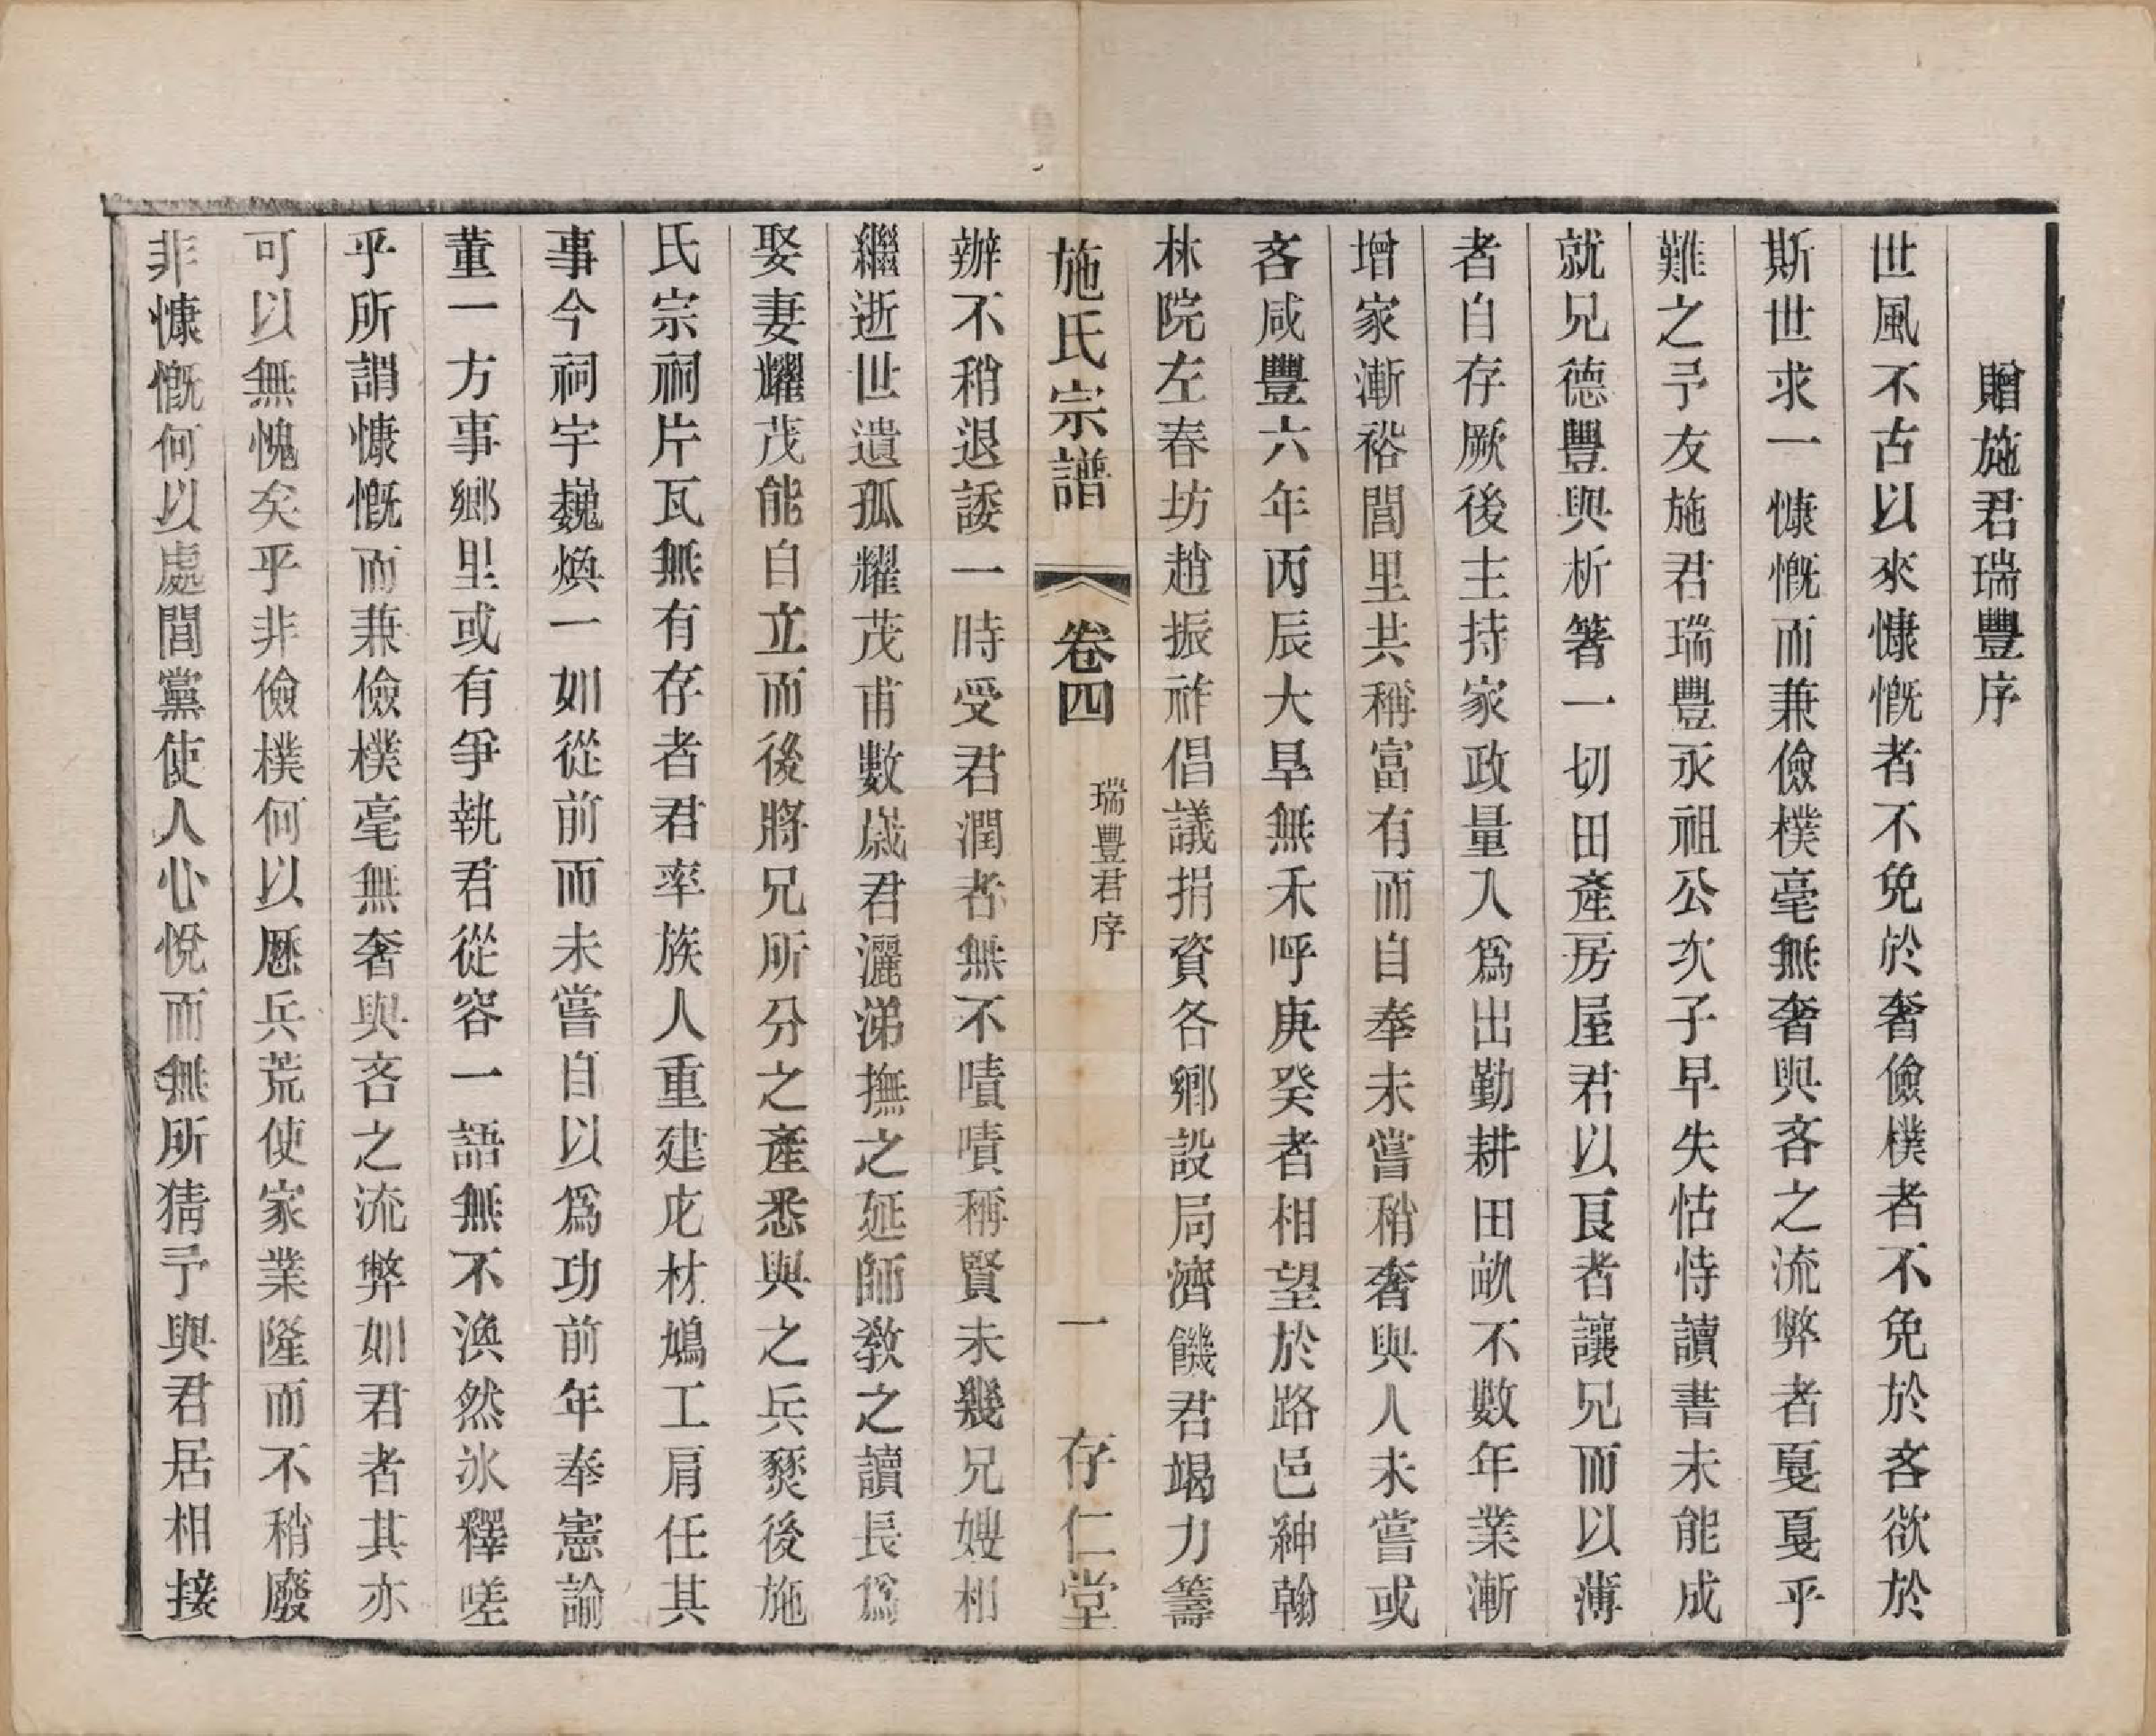 贈施君瑞豐序
世風不古以來慷慨者不免於奢儉樸者不免於吝欲於
斯世求一慷慨而兼儉樸毫無奢與吝之流弊者戞戞乎
難之予友施君瑞豐永祖公次子早失怙恃讀書未能成
就兄德豐與析箸一切田產房屋君以良者讓兄而以薄
者自存厥後主持家政量入爲出勤耕田畝不數年業漸
增家漸裕閭里共稱富有而自奉未嘗稍奢與人未嘗或
吝咸豐六年丙辰大旱無禾呼庚癸者相望於路邑紳翰
林院左春坊趙振祚倡議捐資各鄉設局濟饑君竭力籌
施氏宗譜
卷四
瑞豐君序
一
存仁堂
辦不稍退諉一時受君潤者無不嘖嘖稱賢未幾兄嫂相
繼逝世遺孤耀茂甫數歲君灑涕撫之延師敎之讀長爲
娶妻耀茂能自立而後將兄所分之產悉與之兵燹後施
氏宗祠片瓦無有存者君率族人重建庀材鳩工肩任其
事今祠宇巍煥一如從前而未嘗自以爲功前年奉憲諭
董一方事鄉里或有爭執君從容一語無不渙然冰釋嗟
乎所謂慷慨而兼儉樸毫無奢與吝之流弊如君者其亦
可以無愧矣乎非儉樸何以歷兵荒使家業隆而不稍廢
非慷慨何以處閭黨使人心悅而無所猜予與君居相接